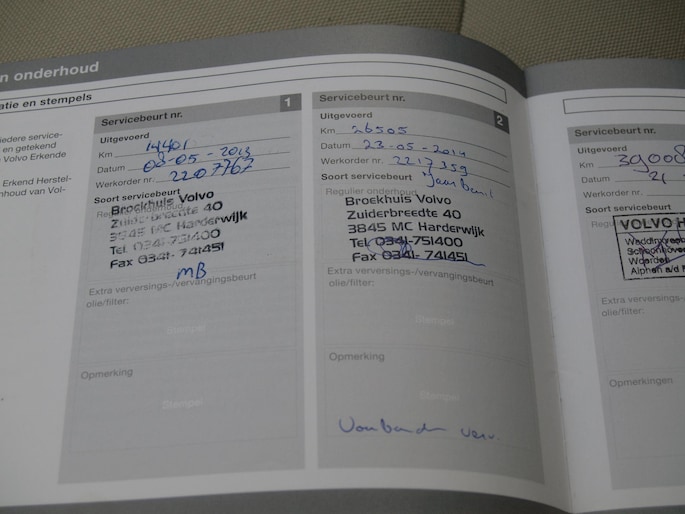 n onderhoud
atie en stempels
iedere service-
en getekend
Volvo Erkende
Erkend Herstel-
nhoud van Vol-
Servicebeurt nr. 1
Uitgevoerd
Km 14401
Datum 08-05-2013
Werkorder nr. 2207767
Soort servicebeurt
Regulier onderhoud
Broekhuis Volvo
Zuiderbreedte 40
3845 MC Harderwijk
Tel. 0341-751400
Fax 0341-741451
MB
Extra verversings-/vervangingsbeurt
olie/filter:
Stempel
Opmerking
Stempel
Servicebeurt nr. 2
Uitgevoerd
Km 26505
Datum 23-05-2014
Werkorder nr. 2217359
Soort servicebeurt
Regulier onderhoud
Broekhuis Volvo
Zuiderbreedte 40
3845 MC Harderwijk
Tel. 0341-751400
Fax 0341-741451
Extra verversings-/vervangingsbeurt
olie/filter:
Stempel
Opmerking
Stempel
Voorbanden verv.
Servicebeurt nr.
Uitgevoerd
Km 39008
Datum 21
Werkorder nr.
Soort servicebeurt
VOLVO
Woerden
Alphen a/d
Extra verversings-
olie/filter:
Opmerkingen